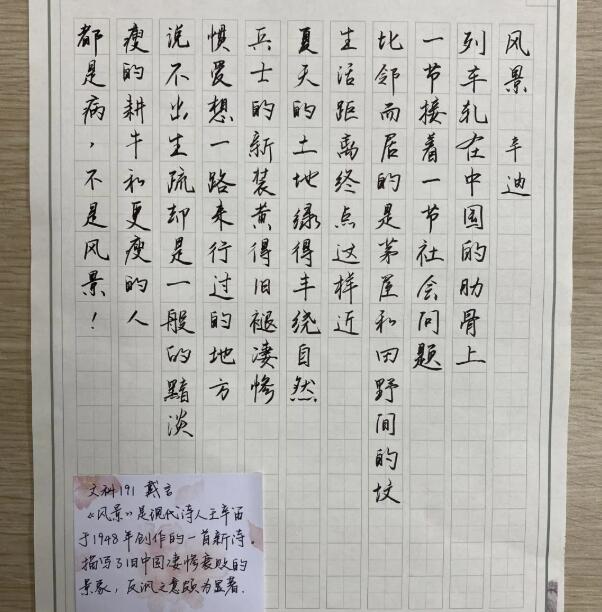 风景 辛迪
列车轧在中国的肋骨上
一节接着一节社会问题
比邻而居的是茅屋和田野间的坟
生活距离终点这样近
夏天的土地绿得丰绕自然
兵士的新装黄得旧褪凄惨
惯爱想一路来行过的地方
说不出生疏却是一般的黯淡
瘦的耕牛和更瘦的人
都是病，不是风景！
文科191 戴言
《风景》是现代诗人王辛笛
于1948年创作的一首新诗。
描写了旧中国凄惨衰败的
景象，反讽之意颇为显著.